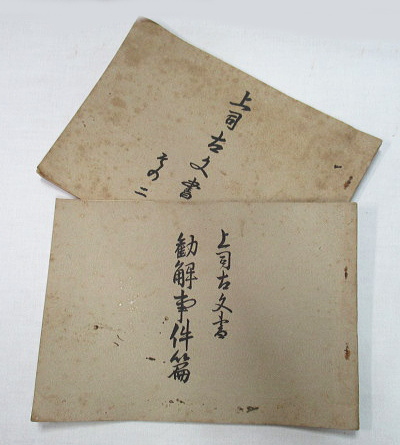 上司古文書
その二
上司古文書
勧解事件篇